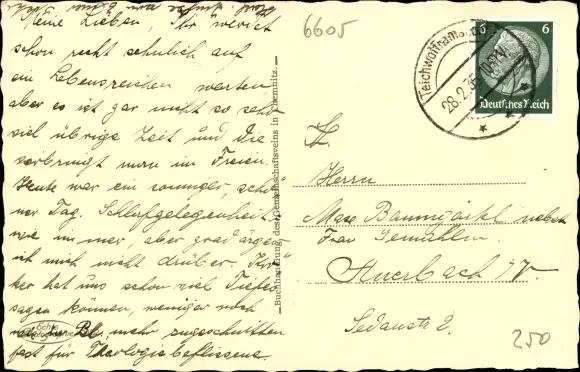 Meine Lieben, Ihr werdet
schon recht sehnlich auf
ein Lebenszeichen warten
aber es ist gar nicht so sehr
viel übrige Zeit und die
verbringt man im Freien.
Heute war ein sonniger, schö-
ner Tag. Schlafgelegenheit
wie immer, aber grad ärger
ich mich nicht drüber.
ker hat uns schon viel Tiefes
sagen können, weniger noch
mehr zugeschnitten
fast für Theologiebeflissene.
Echte
Photographie
Buchhandlung des Gemeinschaftsvereins in Chemnitz.
6605
Teichwolframsdorf
28.2.35
6 6
Deutsches Reich
Herrn
Max Baumgärtel nebst
Frau Gemahlin
Auerbach i/V
Sedanstr 2.
250